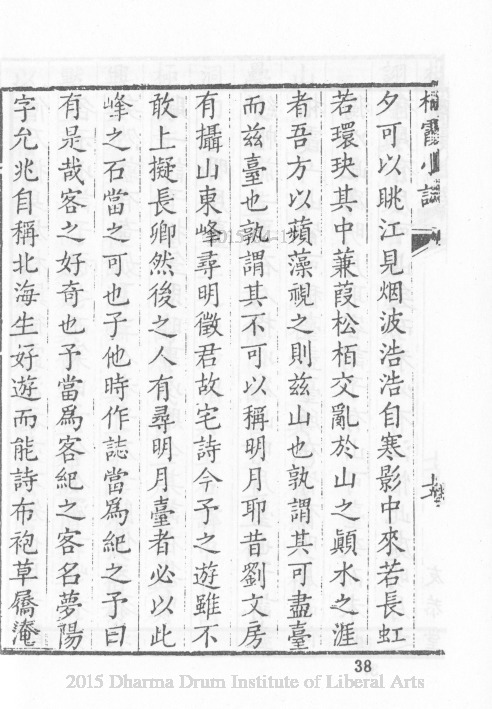 棲霞小誌
夕可以眺江見烟波浩浩自寒影中來若長虹
若環玦其中蒹葭松栢交亂於山之顛水之涯
者吾方以蘋藻視之則兹山也孰謂其可盡臺
而兹臺也孰謂其不可以稱明月耶昔劉文房
有攝山東峰尋明徵君故宅詩今予之遊雖不
敢上擬長卿然後之人有尋明月臺者必以此
峰之石當之可也子他時作誌當爲紀之予曰
有是哉客之好奇也予當爲客紀之客名夢陽
字允兆自稱北海生好遊而能詩布袍草屩淹
38
2015 Dharma Drum Institute of Liberal Arts